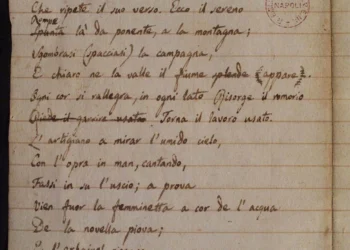 Che ripete il suo verso. Ecco il sereno
Rompe
Spunta là da ponente, a la montagna;
Sgombrasi (spacciasi) la campagna,
E chiaro ne la valle il fiume splende (appare).
Ogni cor si rallegra, in ogni lato Risorge il romorio
Riede il garrire usato Torna il lavoro usato.
L'artigiano a mirar l'umido cielo,
Con l'opra in man, cantando,
Fassi in su l'uscio; a prova
Vien fuor la femminetta a cor de l'acqua
De la novella piova;
NAPOLI